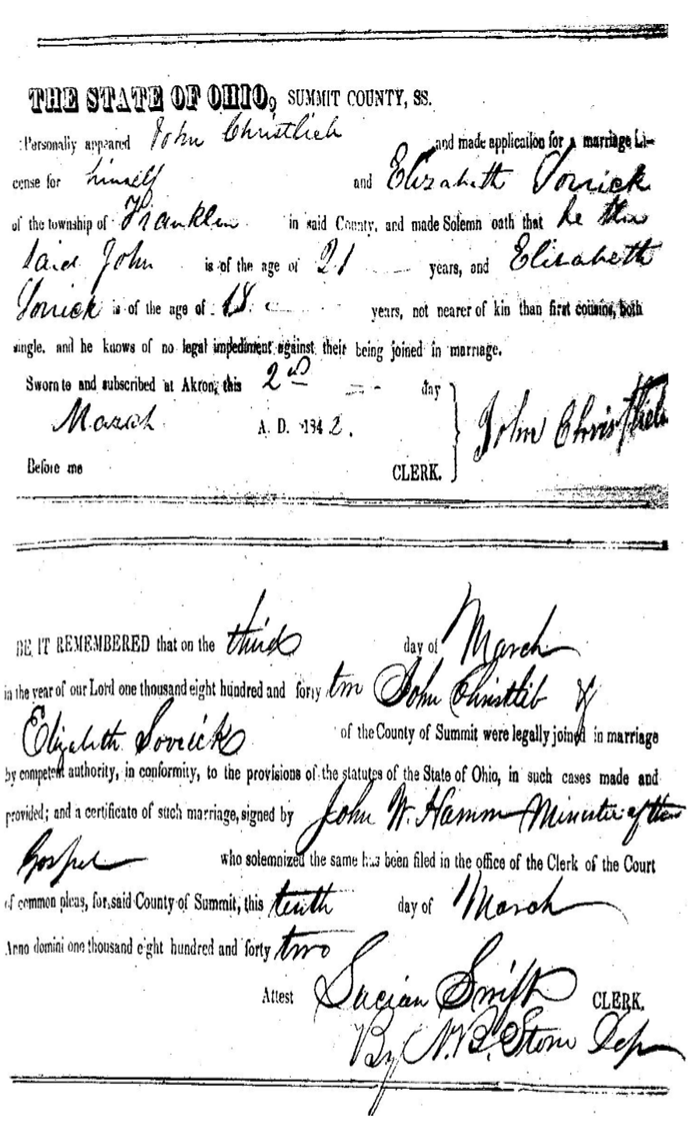 THE STATE OF OHIO, SUMMIT COUNTY, SS.
Personally appeared John Christlieb and made application for a marriage Li-
cense for himself and Elizabeth
of the township of Franklin in said County, and made Solemn oath that he the
said John is of the age of 21 years, and Elizabeth
is of the age of 18 years, not nearer of kin than first cousins, both
single, and he knows of no legal impediment against their being joined in marriage.
Sworn to and subscribed at Akron, this 2nd day
March A. D. 1842. John Christlieb
Before me CLERK.
BE IT REMEMBERED that on the third day of March
in the year of our Lord one thousand eight hundred and forty two John Christlib &
Elizabeth of the County of Summit were legally joined in marriage
by competent authority, in conformity, to the provisions of the statutes of the State of Ohio, in such cases made and
provided; and a certificate of such marriage, signed by John W. Hamm Minister of the
Gospel who solemnized the same has been filed in the office of the Clerk of the Court
of common pleas, for said County of Summit, this tenth day of March
Anno domini one thousand eight hundred and forty two
Attest Lucian Swift CLERK.
By N. B. Stone Dep